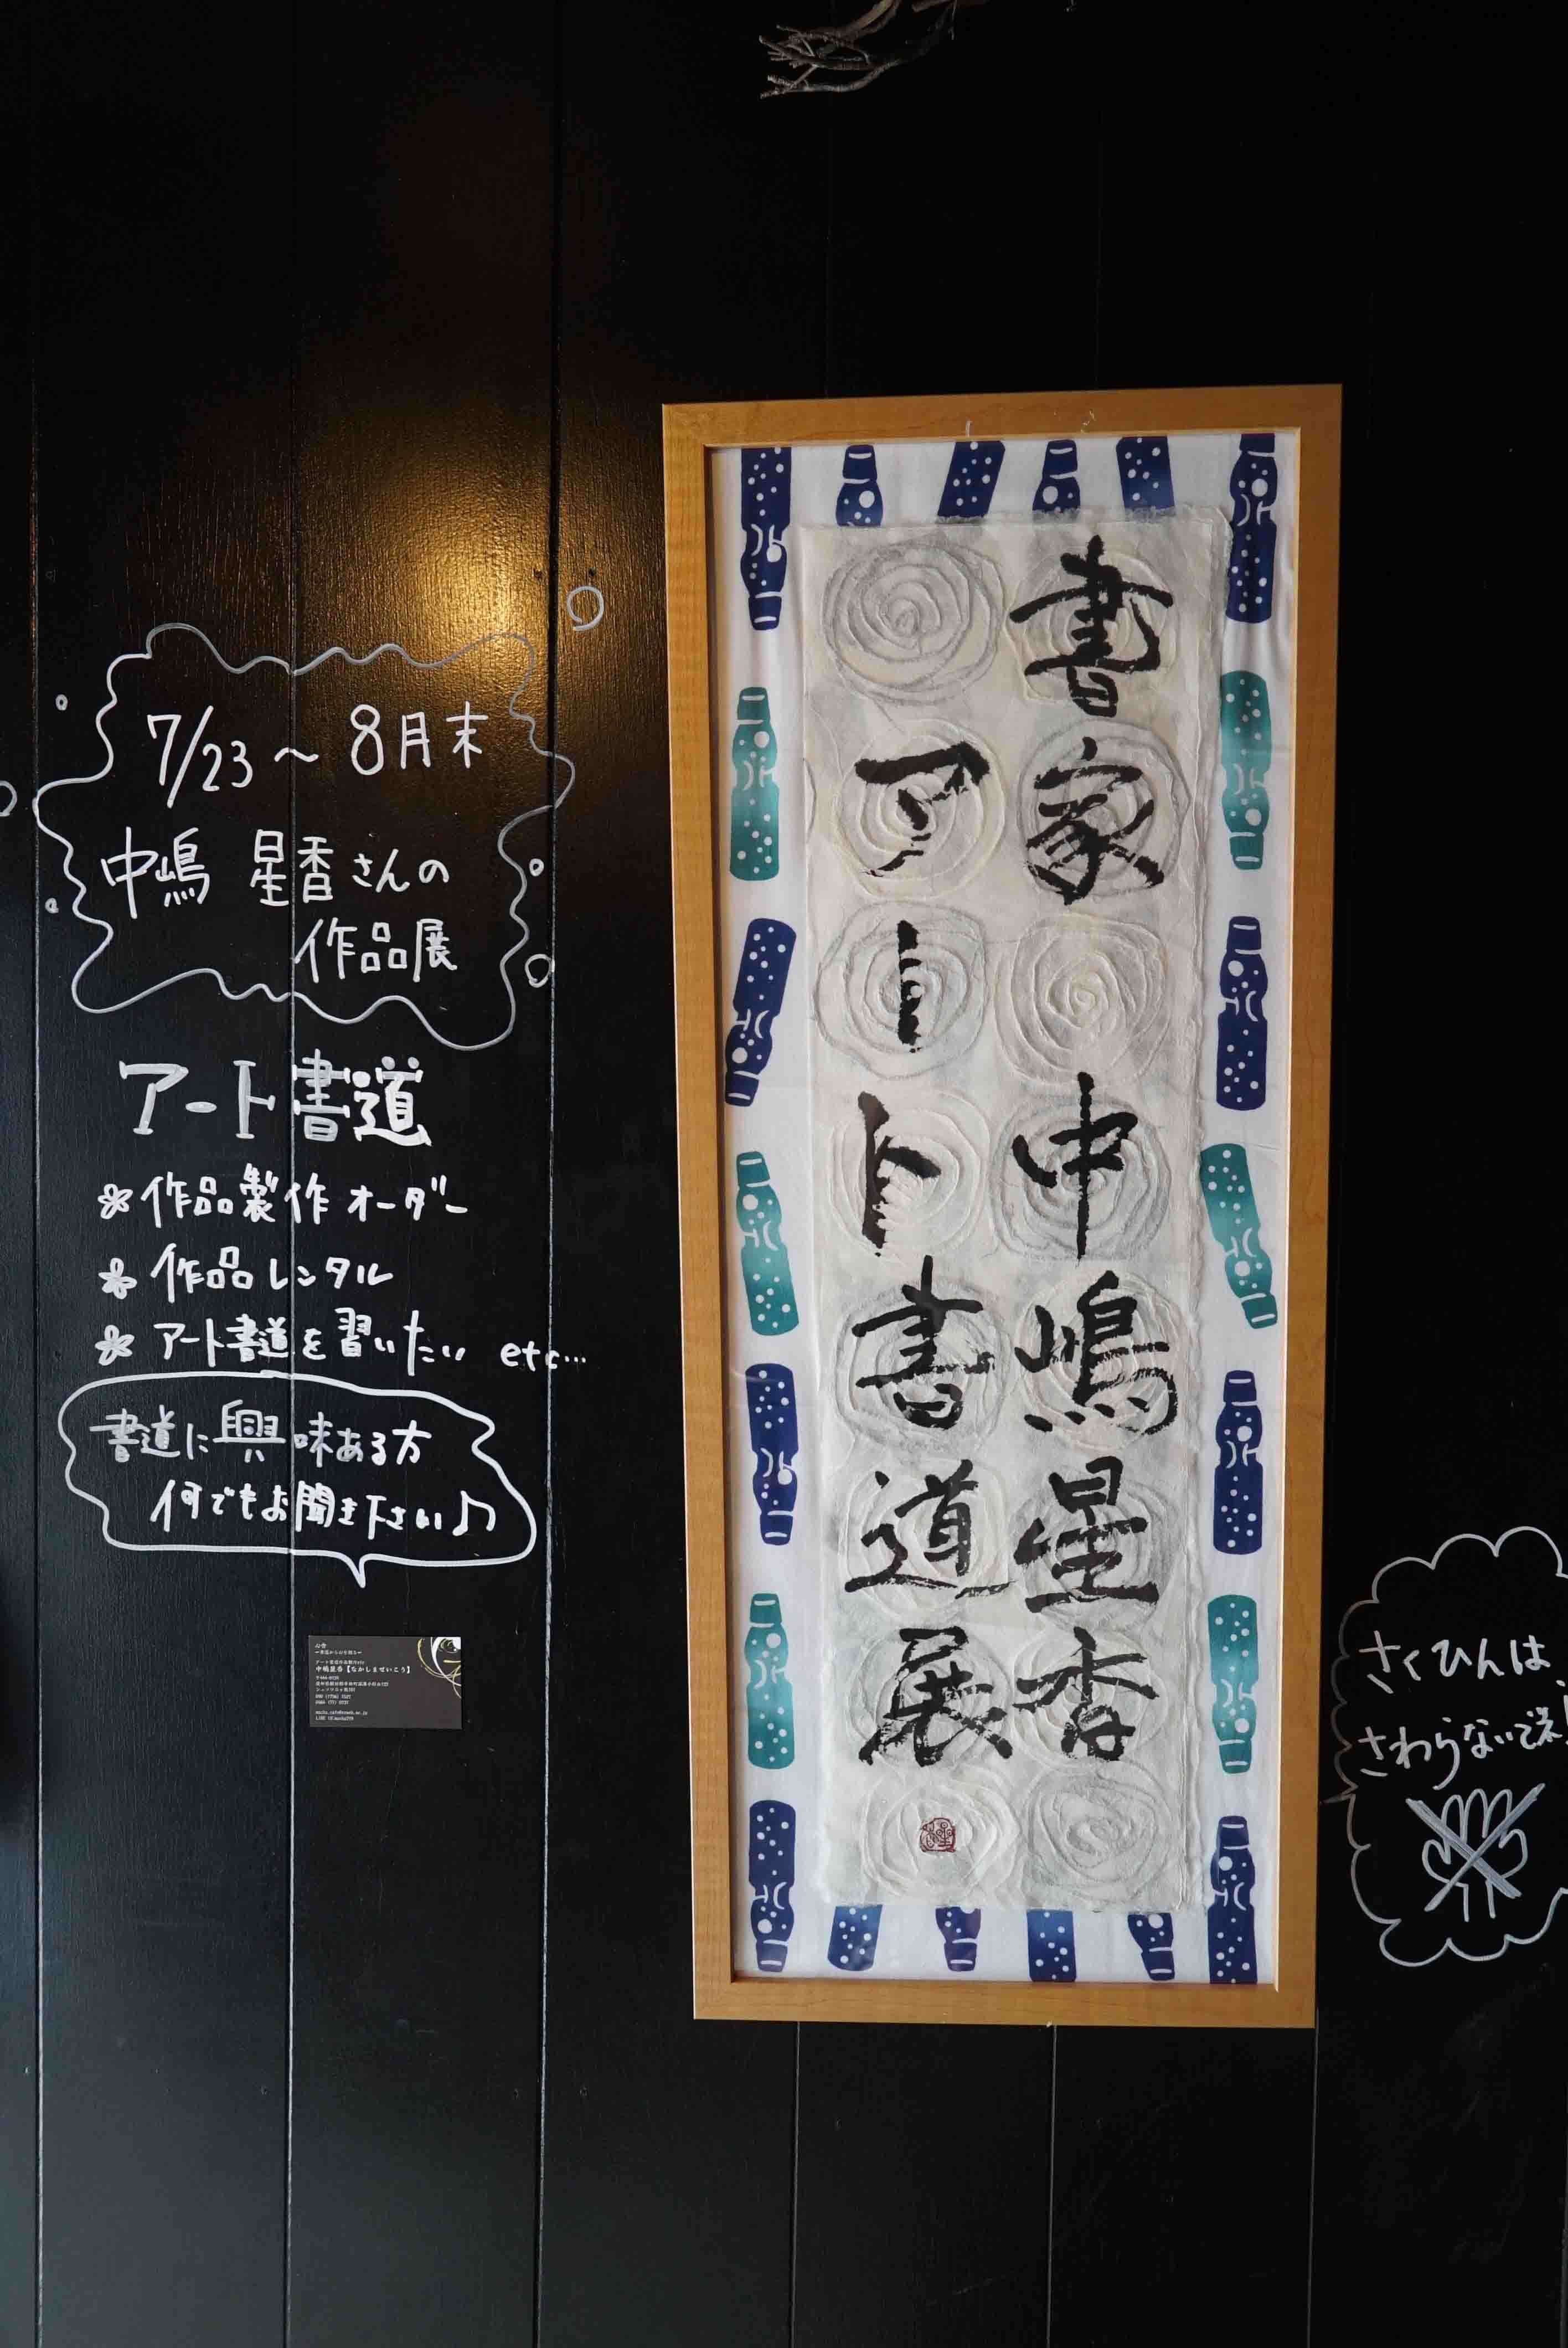 7/23 ~ 8月末
中嶋 星香さんの
作品展
アート書道
作品製作オーダー
作品レンタル
アート書道を習いたい etc…
書道に興味ある方
何でもお聞き下さい♪
中嶋星香【なかしませいこう】
書家 中嶋星香
アート書道展
さくひんは、
さわらないでネ!